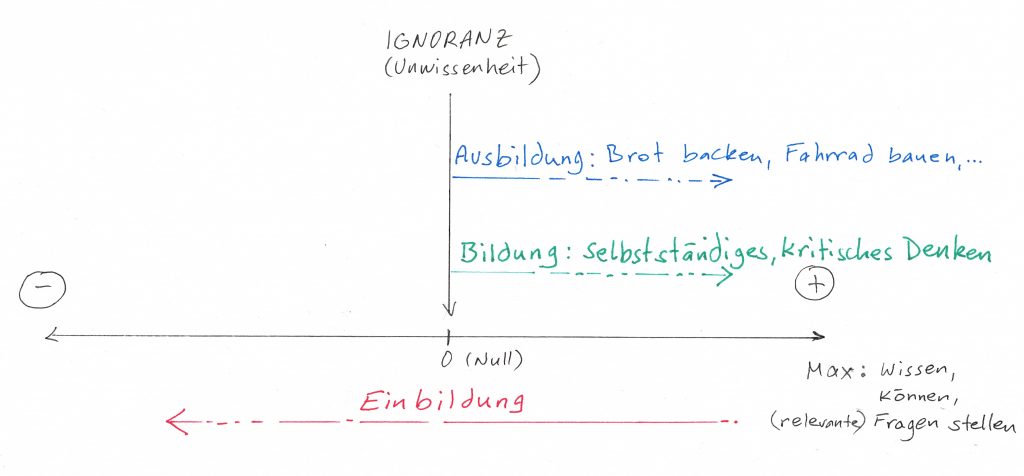 IGNORANZ
(Unwissenheit)
Ausbildung: Brot backen, Fahrrad bauen,...
Bildung: Selbstständiges, kritisches Denken
− +
0 (Null)
Max: Wissen,
Können,
(relevante) Fragen stellen
Einbildung